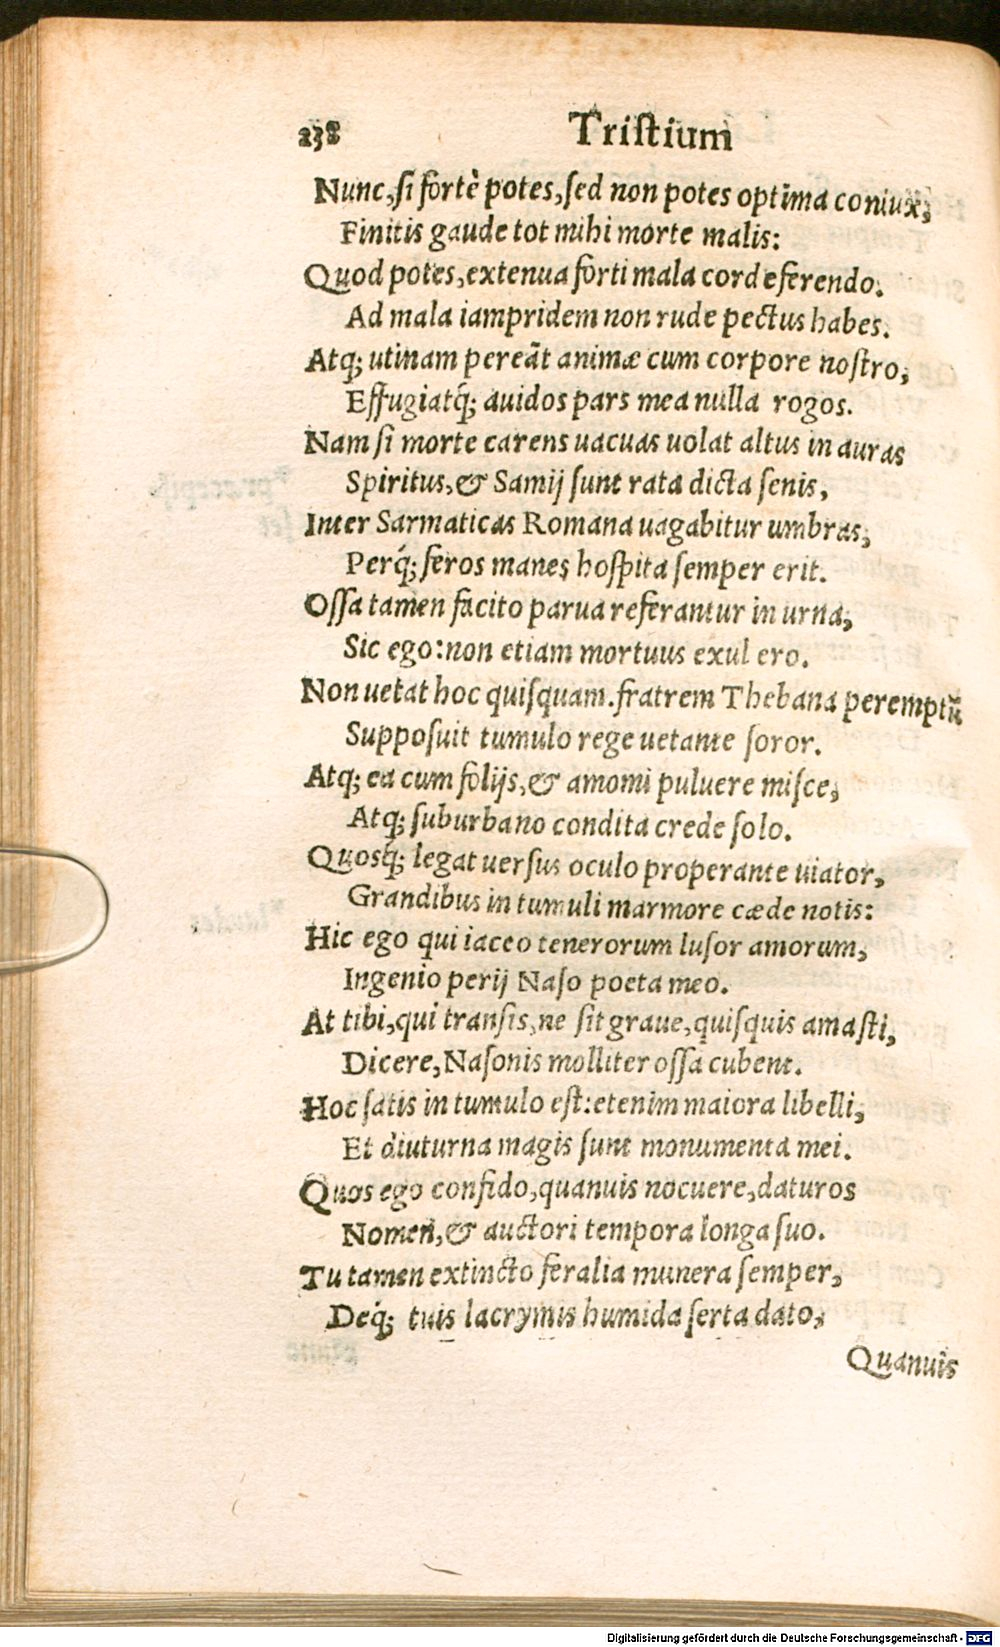 238 Tristium
Nunc, si fortè potes, sed non potes optima coniux,
Finitis gaude tot mihi morte malis:
Quod potes, extenua forti mala corde ferendo.
Ad mala iampridem non rude pectus habes.
Atq; utinam pereāt animæ cum corpore nostro,
Effugiatq́; auidos pars mea nulla rogos.
Nam si morte carens uacuas uolat altus in auras
Spiritus, & Samij sunt rata dicta senis,
Inter Sarmaticas Romana uagabitur umbras,
Perq́; feros manes hospita semper erit.
Ossa tamen facito parua referantur in urna,
Sic ego: non etiam mortuus exul ero.
Non uetat hoc quisquam. fratrem Thebana peremptū
Supposuit tumulo rege uetante soror.
Atq; ea cum folijs, & amomi puluere misce,
Atq; suburbano condita crede solo.
Quosq́; legat uersus oculo properante uiator,
Grandibus in tumuli marmore cæde notis:
Hic ego qui iaceo tenerorum lusor amorum,
Ingenio perij Naso poeta meo.
At tibi, qui transis, ne sit graue, quisquis amasti,
Dicere, Nasonis molliter ossa cubent.
Hoc satis in tumulo est: etenim maiora libelli,
Et diuturna magis sunt monumenta mei.
Quos ego confido, quanuis nocuere, daturos
Nomen, & auctori tempora longa suo.
Tu tamen extincto feralia munera semper,
Deq́; tuis lacrymis humida serta dato,
Quanuis
Digitalisierung gefördert durch die Deutsche Forschungsgemeinschaft - DFG